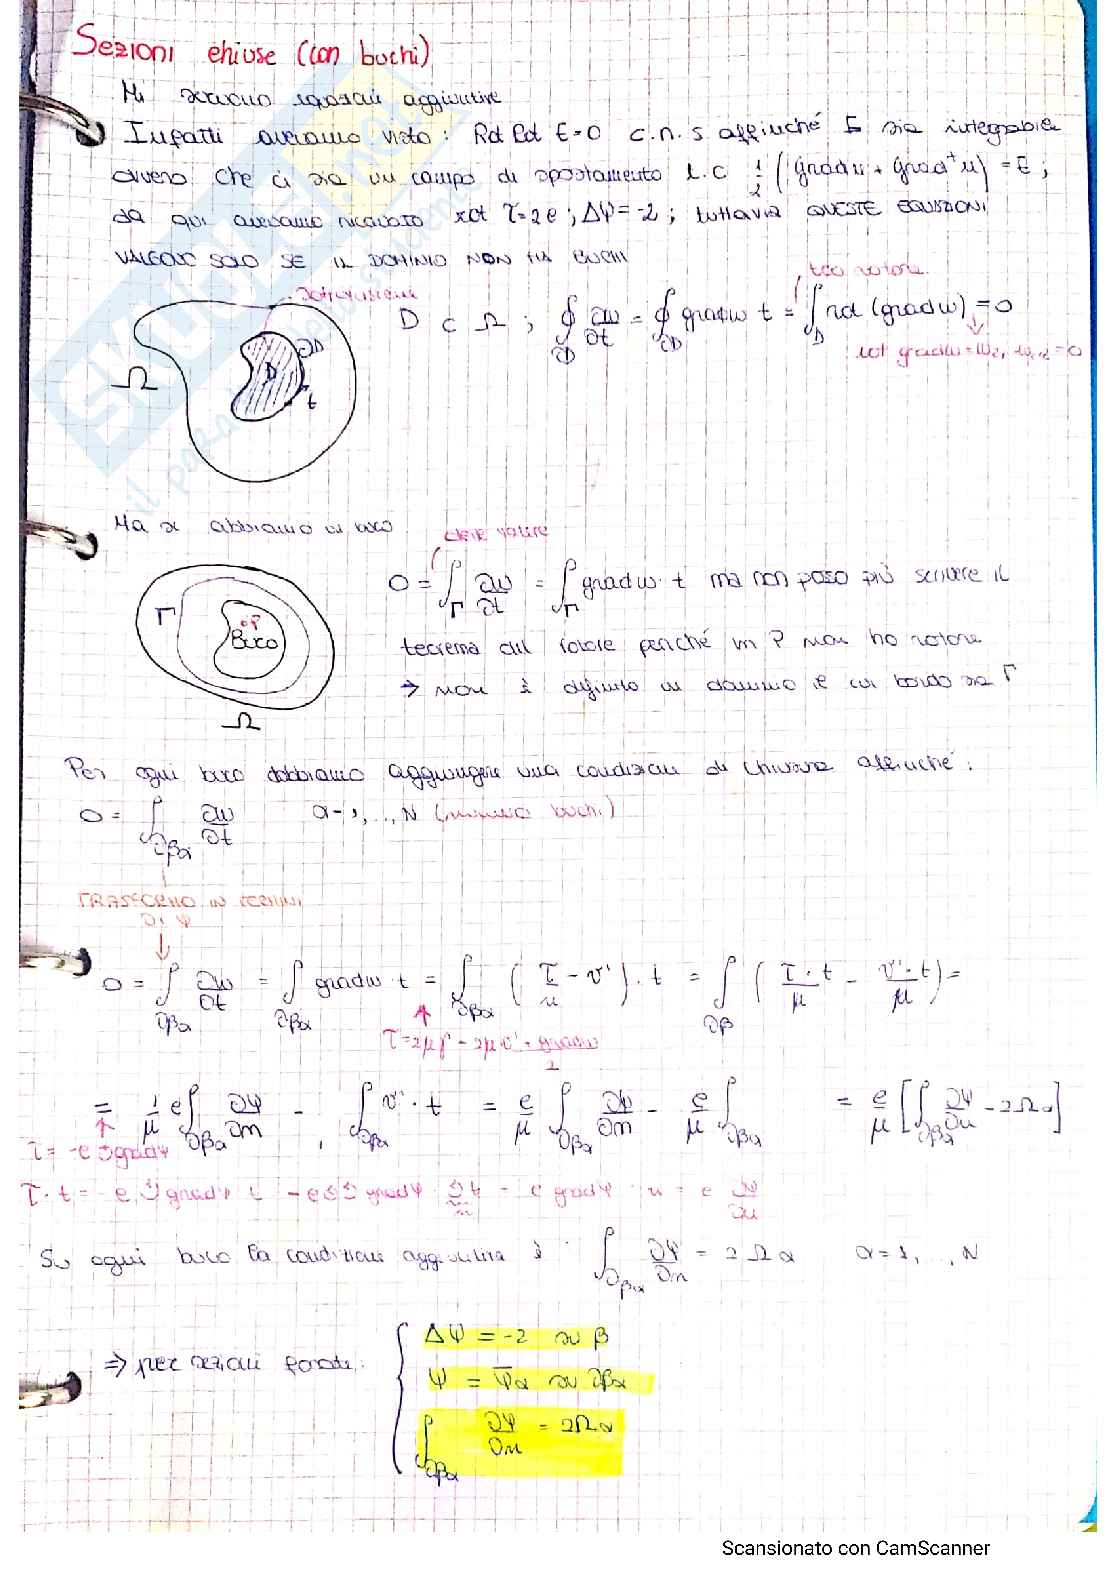 Sezioni chiuse (con buchi)
Mi servono equazioni aggiuntive
Infatti avevamo visto: Rot Rot E=0 c.n.s affinché E sia integrabile
ovvero che ci sia un campo di spostamento t.c 1/2 (gradu + gradᵀu) = E ;
da qui avevamo ricavato rot τ=2e ; Δψ=-2 ; tuttavia QUESTE EQUAZIONI
VALGONO SOLO SE IL DOMINIO NON HA BUCHI
teo rotore
D ⊂ Ω ; ∮∂D ∂w/∂t = ∮∂D gradw t = ∫D rot (gradw) = 0
rot gradw = w,21 - w,12 = 0
Ω
D
∂D
t
Ma se abbiamo un buco
deve valere
0 = ∫Γ ∂w/∂t = ∫Γ gradw · t ma non posso più scrivere il
teorema del rotore perché in P non ho rotore
→ non è definito un dominio il cui bordo sia Γ
Γ
P
Buco
Ω
Per ogni buco dobbiamo aggiungere una condizione di chiusura affinché:
0 = ∫∂βα ∂w/∂t α=1, .., N (numero buchi)
TRASFORMO IN TERMINI
DI ψ
0 = ∫∂βα ∂w/∂t = ∫∂βα gradw · t = ∫∂βα ( τ/μ - v' ) · t = ∫∂β ( τ·t/μ - v'·t/μ ) =
= 1/μ e ∫∂βα ∂ψ/∂m - ∫∂βα v' · t = e/μ ∫∂βα ∂ψ/∂m - e/μ ∫∂βα = e/μ [ ∫∂βα ∂ψ/∂m - 2Ωα ]
Su ogni buco la condizione aggiuntiva è : ∫∂βα ∂ψ/∂m = 2Ωα α=1, .., N
⇒ per sezioni forate:
Δψ = -2 su β
ψ = ψ̄α su ∂βα
∫∂βα ∂ψ/∂m = 2Ωα
Scansionato con CamScanner